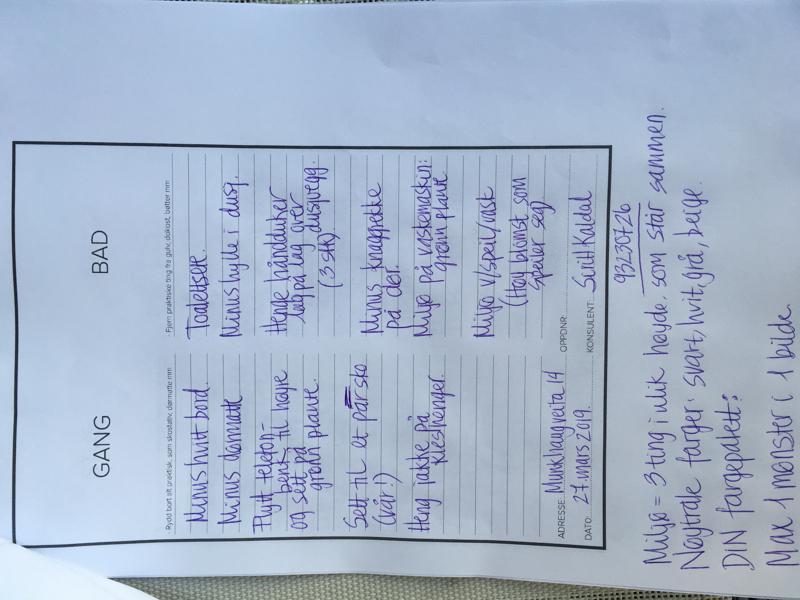 GANG
- Rydd bort alt praktisk, som skostativ, dørmatte mm
Minus hvitt bord.
Minus dørmatte
Flytt telefon-
benk til høyre
og sett på
grønn plante.
Sett til et par sko
(vår!)
Heng jakke på
kleshenger.
ADRESSE: Munkhaugveita 14
DATO: 27. mars 2019.
BAD
- Fjern praktiske ting fra gulv, dokost, bøtter mm
Toalettsete.
Minus hylle i dusj.
Henge håndduker
lag på lag over
dusjvegg.
(3 stk)
Minus knaggrekke
på dør.
Miljø på vaskemaskin:
grønn plante
Miljø v/speil/vask
(Høy blomst som
speiler seg)
OPPDNR:
KONSULENT: Kaldal
93230726
Miljø = 3 ting i ulik høyde, som står sammen.
Nøytrale farger: svart, hvit, grå, beige.
DIN fargepalett:
Max 1 mønster i 1 bilde.